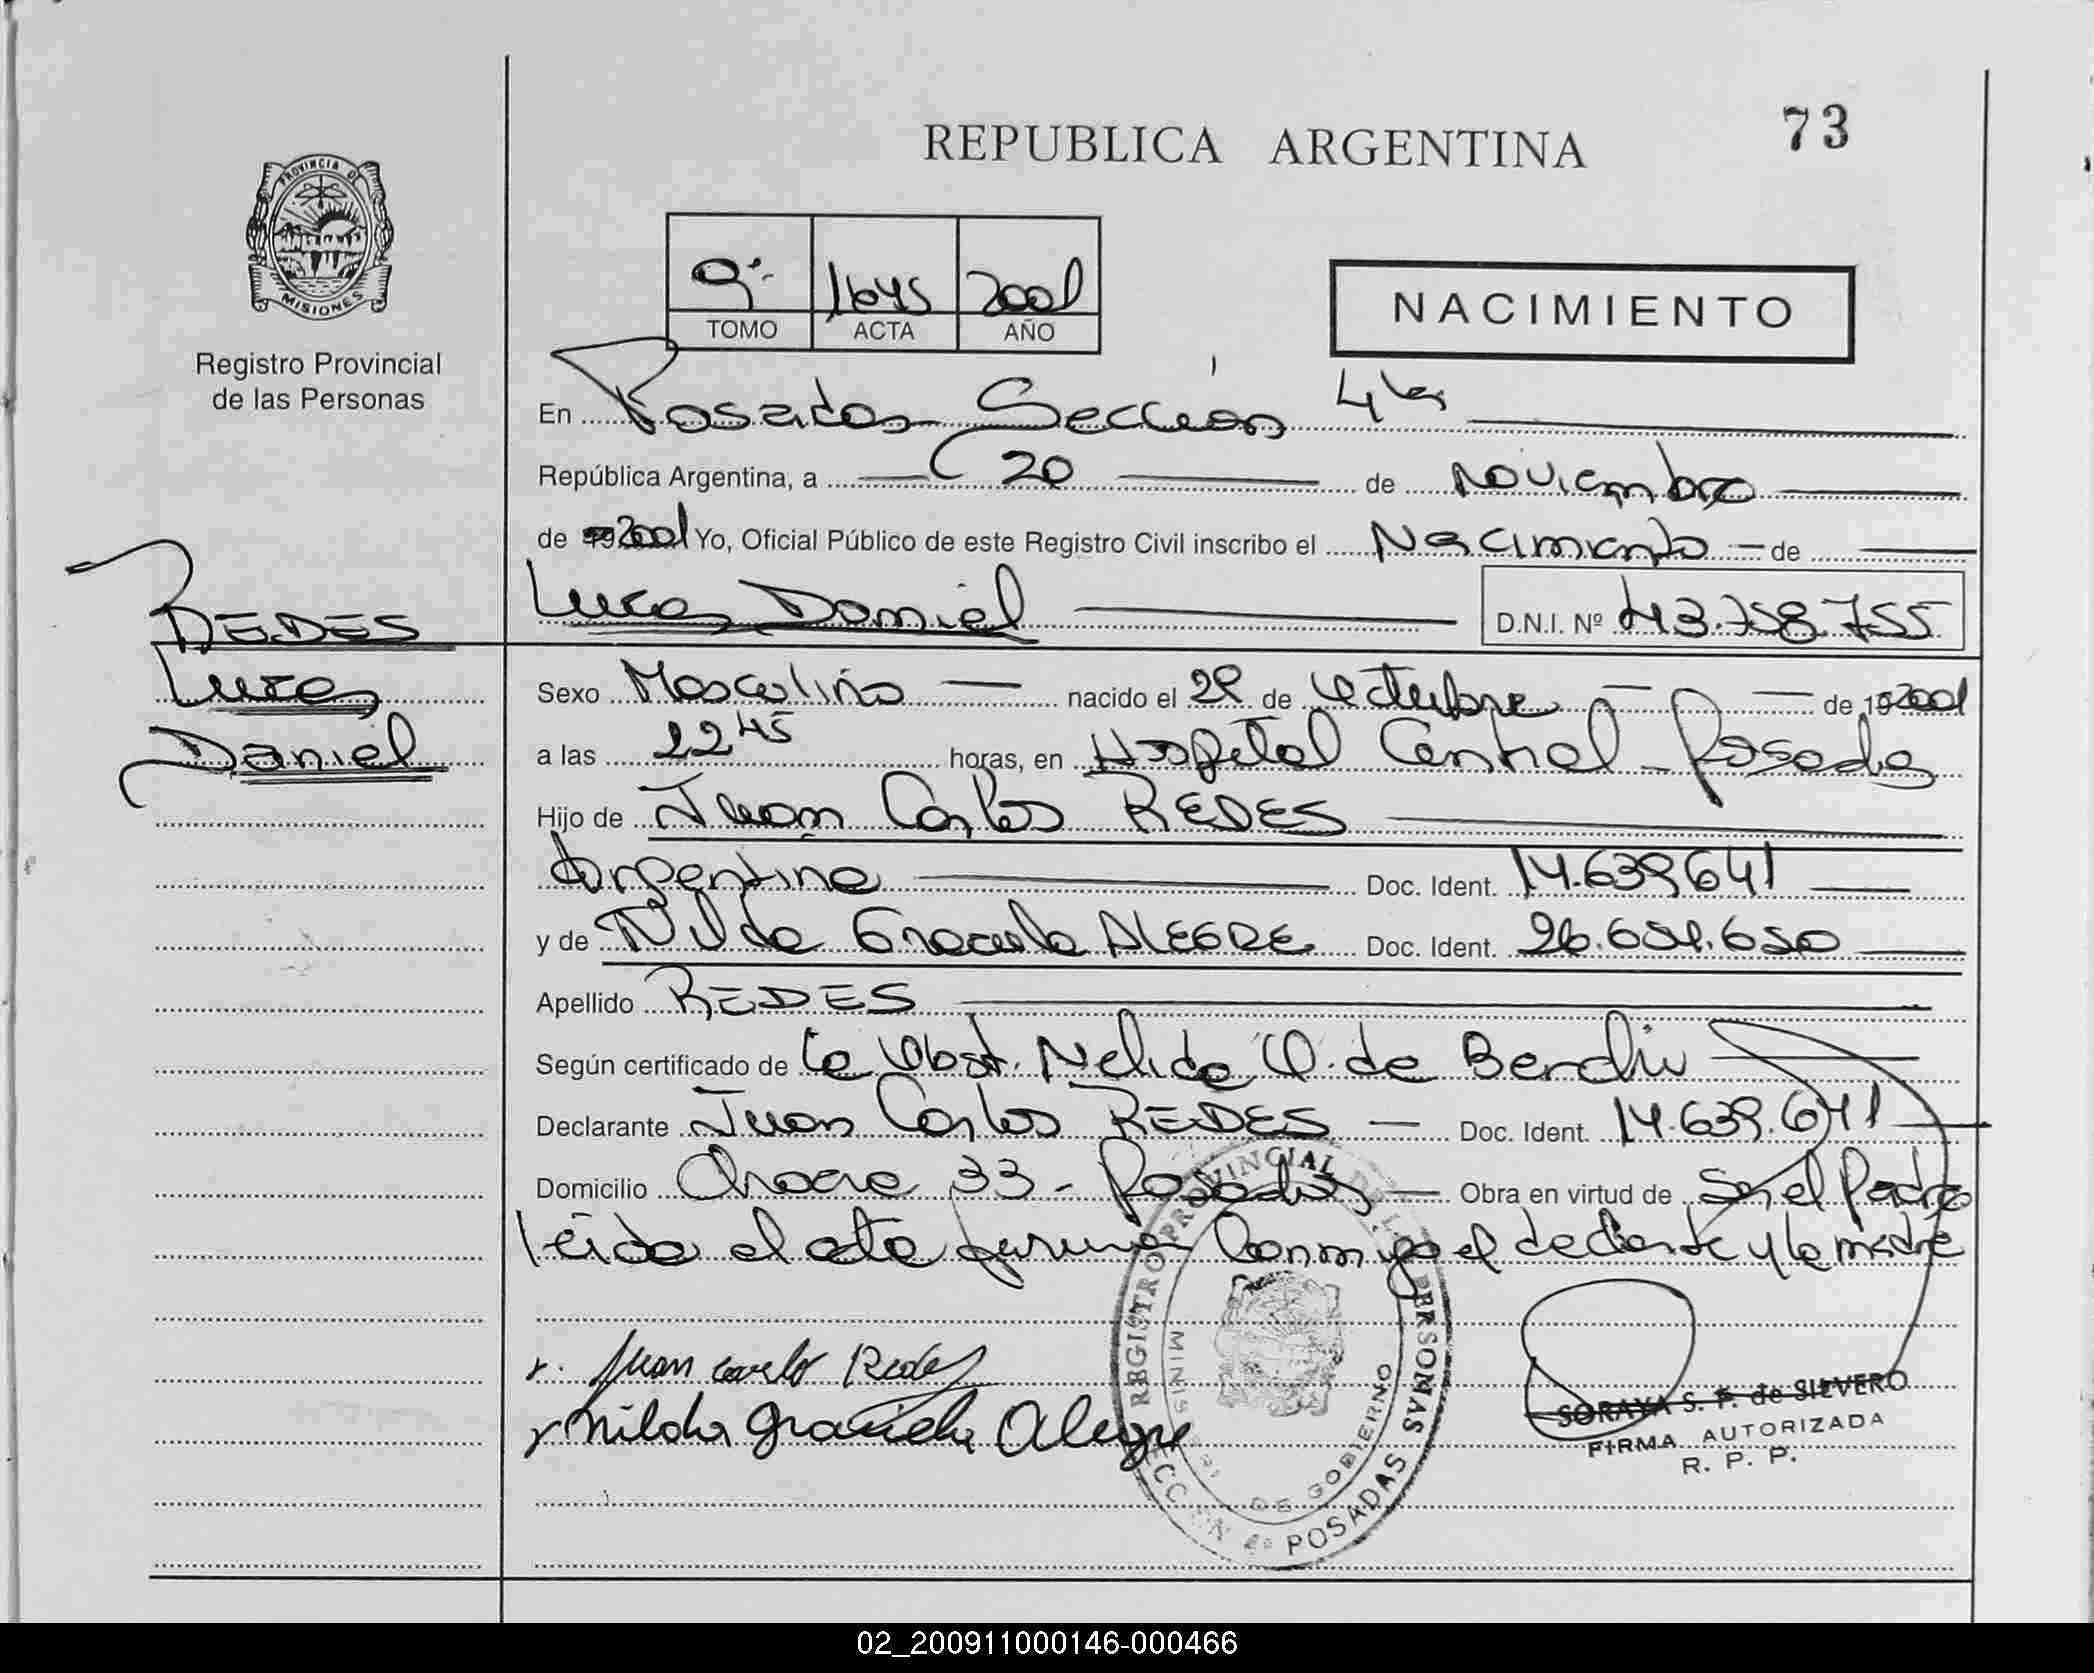 REPUBLICA ARGENTINA
73
PROVINCIA DE
MISIONES
Registro Provincial
de las Personas
9º 1645 2001
TOMO ACTA AÑO
NACIMIENTO
En Posadas Sección 4ta
República Argentina, a 20 de Noviembre
de 2001 Yo, Oficial Público de este Registro Civil inscribo el Nacimiento de
Lucas Daniel D.N.I. Nº 43.758.755
REDES
Lucas
Daniel
Sexo Masculino nacido el de Octubre de 2001
a las 22 45 horas, en Hospital Central - Posadas
Hijo de Juan Carlos REDES
Argentina Doc. Ident. 14.639.641
y de Nilda Graciela ALEGRE Doc. Ident.
Apellido REDES
Según certificado de la Obst. Nelida O. de
Declarante Juan Carlos REDES Doc. Ident. 14.639.641
Domicilio Chacra 33 - Posadas Obra en virtud de Ser el Padre
leída el acta firman conmigo el declarante y la madre
Juan carlos Redes
Nilda Graciela Alegre
REGISTRO PROVINCIAL DE LAS PERSONAS
MINISTERIO DE GOBIERNO
SECCION 4ª POSADAS
SORAYA S. F. de SILVERO
FIRMA AUTORIZADA
R. P. P.
02_200911000146-000466